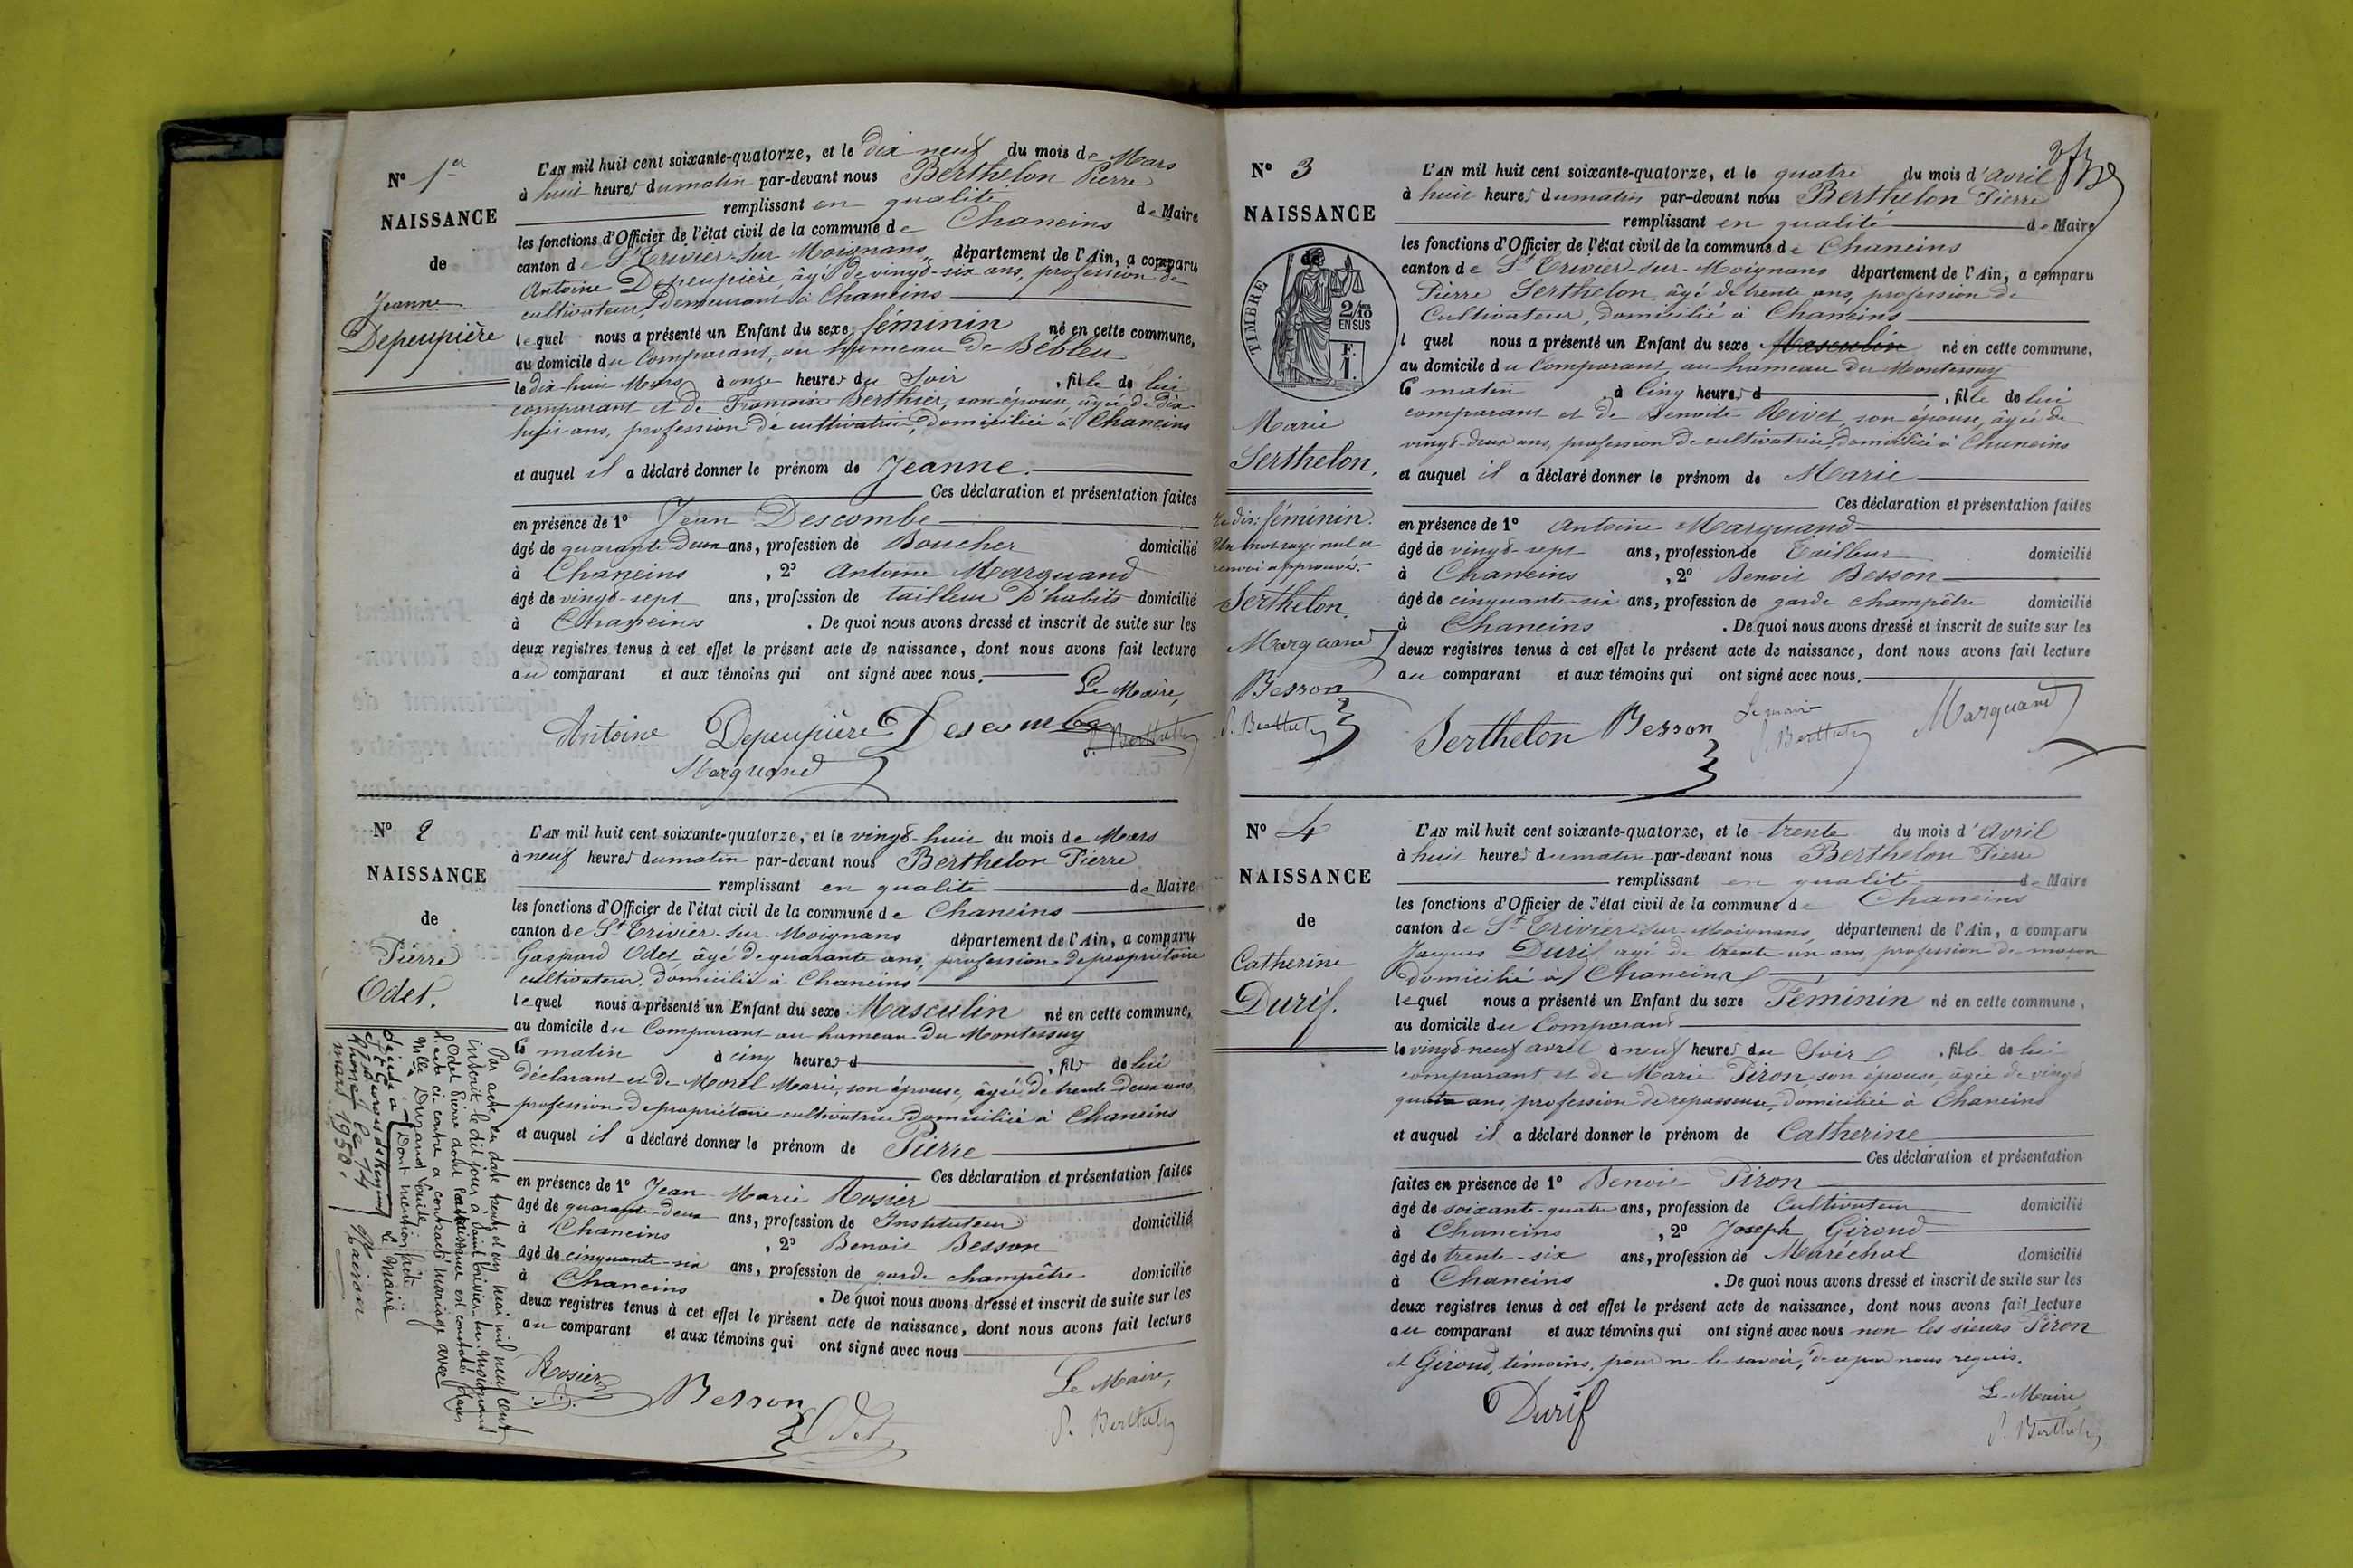 N° 1er
NAISSANCE
de
Jeanne
Depeupière
L'AN mil huit cent soixante-quatorze, et le dix neuf du mois de Mars
à huit heures du matin par-devant nous Berthelon Pierre
remplissant en qualité de Maire
les fonctions d'Officier de l'état civil de la commune de Chaneins
canton de St Trivier-sur-Moignans, département de l'Ain, a comparu
Antoine Depeupière, âgé de vingt-six ans, profession de
cultivateur, demeurant à Chaneins
lequel nous a présenté un Enfant du sexe féminin né en cette commune,
au domicile du Comparant, au hameau de Bébleu
le dix-huit Mars à onze heures du Soir, fille de lui
comparant et de Berthier, son épouse, âgée de dix
huit ans, profession de cultivatrice, domiciliée à Chaneins
et auquel il a déclaré donner le prénom de Jeanne.
Ces déclaration et présentation faites
en présence de 1° Jean Descombe
âgé de quarante deux ans, profession de Boucher domicilié
à Chaneins, 2° Antoine Marquand
âgé de vingt-sept ans, profession de tailleur d'habits domicilié
à Chaneins. De quoi nous avons dressé et inscrit de suite sur les
deux registres tenus à cet effet le présent acte de naissance, dont nous avons fait lecture
au comparant et aux témoins qui ont signé avec nous.
Le Maire,
Antoine Depeupière Descombe P. Berthelon
Marquand
N° 2
NAISSANCE
de
Pierre
Odet.
L'AN mil huit cent soixante-quatorze, et le vingt-huit du mois de Mars
à neuf heures du matin par-devant nous Berthelon Pierre
remplissant en qualité de Maire
les fonctions d'Officier de l'état civil de la commune de Chaneins
canton de St Trivier-sur-Moignans département de l'Ain, a comparu
Gaspard Odet, âgé de quarante ans, profession de propriétaire
cultivateur, domicilié à Chaneins
lequel nous a présenté un Enfant du sexe Masculin né en cette commune,
au domicile du Comparant au hameau du Montessuy
le matin à cinq heures d, fils de lui
déclarant et de Morel Marie, son épouse, âgée de trente deux ans,
profession de propriétaire cultivatrice domiciliée à Chaneins
et auquel il a déclaré donner le prénom de Pierre
Ces déclaration et présentation faites
en présence de 1° Jean Marie Rosier
âgé de quarante-deux ans, profession de Instituteur domicilié
à Chaneins, 2° Benoit Besson
âgé de cinquante-six ans, profession de garde champêtre domicilié
à Chaneins. De quoi nous avons dressé et inscrit de suite sur les
deux registres tenus à cet effet le présent acte de naissance, dont nous avons fait lecture
au comparant et aux témoins qui ont signé avec nous
Le Maire,
Rosier Besson Odet P. Berthelon
Par acte en date trente et un mai mil neuf cent
inscrit le dit jour à Saint Trivier-sur-Moignans
Odet Pierre dont la naissance est constatée dans
l'acte ci contre a contracté mariage avec
Mlle Durand Louise
Dont mention faite
Le Maire
décédé à
St Genis
Rhône le 14
mars 1958.
N° 3
NAISSANCE
TIMBRE
2/10es
EN SUS
F.
1.
Marie
Serthelon.
Je dis: féminin.
Un mot rayé nul et
renvoi approuvés.
Serthelon
Marquand
Besson
P. Berthelon
L'AN mil huit cent soixante-quatorze, et le quatre du mois d'avril
à huit heures du matin par-devant nous Berthelon Pierre
remplissant en qualité de Maire
les fonctions d'Officier de l'état civil de la commune de Chaneins
canton de St Trivier-sur-Moignans département de l'Ain, a comparu
Pierre Serthelon, âgé de trente ans, profession de
Cultivateur, domicilié à Chaneins
l quel nous a présenté un Enfant du sexe Masculin né en cette commune,
au domicile du Comparant, au hameau du Montessuy
le matin à cinq heures d, fille de lui
comparant et de Benoite Rivet, son épouse, âgée de
vingt-deux ans, profession de cultivatrice, domiciliée à Chaneins
et auquel il a déclaré donner le prénom de Marie
Ces déclaration et présentation faites
en présence de 1° Antoine Marquand
âgé de vingt-sept ans, profession de Tailleur domicilié
à Chaneins, 2° Benoit Besson
âgé de cinquante-six ans, profession de garde champêtre domicilié
à Chaneins. De quoi nous avons dressé et inscrit de suite sur les
deux registres tenus à cet effet le présent acte de naissance, dont nous avons fait lecture
au comparant et aux témoins qui ont signé avec nous.
Le maire
Serthelon Besson P. Berthelon Marquand
N° 4
NAISSANCE
de
Catherine
Durif.
L'AN mil huit cent soixante-quatorze, et le trente du mois d'avril
à huit heures du matin par-devant nous Berthelon Pierre
remplissant en qualité de Maire
les fonctions d'Officier de l'état civil de la commune de Chaneins
canton de St Trivier-sur-Moignans, département de l'Ain, a comparu
Jacques Durif âgé de trente un ans, profession de maçon
domicilié à Chaneins
lequel nous a présenté un Enfant du sexe Féminin né en cette commune,
au domicile du Comparant
le vingt-neuf avril à neuf heures du Soir, fille de lui
comparant et de Marie Piron son épouse, âgée de vingt
quatre ans, profession de repasseuse, domiciliée à Chaneins
et auquel il a déclaré donner le prénom de Catherine
Ces déclaration et présentation
faites en présence de 1° Benoit Piron
âgé de soixante-quatre ans, profession de Cultivateur domicilié
à Chaneins, 2° Joseph Giroud
âgé de trente-six ans, profession de Maréchal domicilié
à Chaneins. De quoi nous avons dressé et inscrit de suite sur les
deux registres tenus à cet effet le présent acte de naissance, dont nous avons fait lecture
au comparant et aux témoins qui ont signé avec nous non les sieurs Piron
et Giroud, témoins, pour ne le savoir, de ce par nous requis.
Le Maire
Durif P. Berthelon